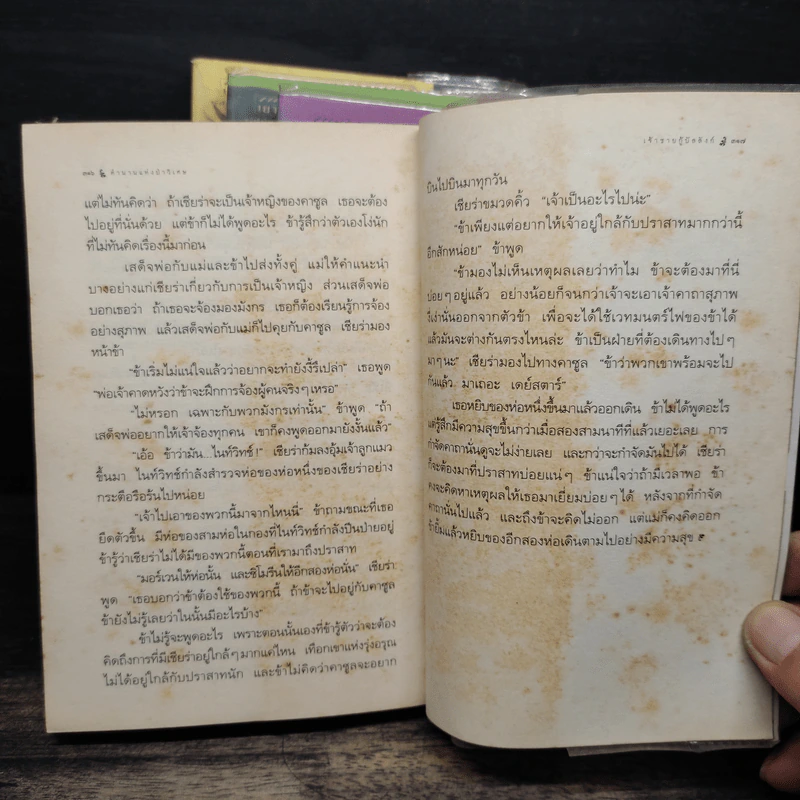 ๓๑๖ ตำนานแห่งป่าวิเศษ
แต่ไม่ทันคิดว่า ถ้าเชียร่าจะเป็นเจ้าหญิงของคาซูล เธอจะต้อง
ไปอยู่ที่นั่นด้วย แต่ข้าก็ไม่ได้พูดอะไร ข้ารู้สึกว่าตัวเองโง่นัก
ที่ไม่ทันคิดเรื่องนี้มาก่อน
เสด็จพ่อกับแม่และข้าไปส่งทั้งคู่ แม่ให้คำแนะนำ
บางอย่างแก่เชียร่าเกี่ยวกับการเป็นเจ้าหญิง ส่วนเสด็จพ่อ
บอกเธอว่า ถ้าเธอจะจ้องมองมังกร เธอก็ต้องเรียนรู้การจ้อง
อย่างสุภาพ แล้วเสด็จพ่อกับแม่ก็ไปคุยกับคาซูล เชียร่ามอง
หน้าข้า
“ข้าเริ่มไม่แน่ใจแล้วว่าอยากจะทำยังงี้รึเปล่า” เธอพูด
“พ่อเจ้าคาดหวังว่าข้าจะฝึกการจ้องผู้คนจริงๆ เหรอ”
“ไม่หรอก เฉพาะกับพวกมังกรเท่านั้น” ข้าพูด “ถ้า
เสด็จพ่ออยากให้เจ้าจ้องทุกคน เขาก็คงพูดออกมายังงั้นแล้ว”
“เอ้อ ข้าว่ามัน...ไนท์วิทช์!” เชียร่าก้มลงอุ้มเจ้าลูกแมว
ขึ้นมา ไนท์วิทช์กำลังสำรวจห่อของห่อหนึ่งของเชียร่าอย่าง
กระตือรือร้นไปหน่อย
“เจ้าไปเอาของพวกนี้มาจากไหนนี่” ข้าถามขณะที่เธอ
ยืดตัวขึ้น มีห่อของสามห่อในกองที่ไนท์วิทช์กำลังปีนป่ายอยู่
ข้ารู้ว่าเชียร่าไม่ได้มีของพวกนี้ตอนที่เรามาถึงปราสาท
“มอร์เวนให้ห่อนั้น และซิโมรีนให้อีกสองห่อนั่น” เชียร่า
พูด “เธอบอกว่าข้าต้องใช้ของพวกนี้ ถ้าข้าจะไปอยู่กับคาซูล
ข้ายังไม่รู้เลยว่าในนั้นมีอะไรบ้าง”
ข้าไม่รู้จะพูดอะไร เพราะตอนนั้นเองที่ข้ารู้ตัวว่าจะต้อง
คิดถึงการที่มีเชียร่าอยู่ใกล้ๆ มากแค่ไหน เทือกเขาแห่งรุ่งอรุณ
ไม่ได้อยู่ใกล้กับปราสาทนัก และข้าไม่คิดว่าคาซูลจะอยาก
เจ้าชายกู้บัลลังก์ ๓๑๗
บินไปบินมาทุกวัน
เชียร่าขมวดคิ้ว “เจ้าเป็นอะไรไปน่ะ”
“ข้าเพียงแต่อยากให้เจ้าอยู่ใกล้กับปราสาทมากกว่านี้
อีกสักหน่อย” ข้าพูด
“ข้ามองไม่เห็นเหตุผลเลยว่าทำไม ข้าจะต้องมาที่นี่
บ่อยๆ อยู่แล้ว อย่างน้อยก็จนกว่าเจ้าจะเอาเจ้าคาถาสุภาพ
งี่เง่านั่นออกจากตัวข้า เพื่อจะได้ใช้เวทมนตร์ไฟของข้าได้
แล้วมันจะต่างกันตรงไหนล่ะ ข้าเป็นฝ่ายที่ต้องเดินทางไปๆ
มาๆ นะ” เชียร่ามองไปทางคาซูล “ข้าว่าพวกเขาพร้อมจะไป
กันแล้ว มาเถอะ เดย์สตาร์”
เธอหยิบของห่อหนึ่งขึ้นมาแล้วออกเดิน ข้าไม่ได้พูดอะไร
แต่รู้สึกมีความสุขขึ้นกว่าเมื่อสองสามนาทีที่แล้วเยอะเลย การ
กำจัดคาถานั่นดูจะไม่ง่ายเลย และกว่าจะกำจัดมันไปได้ เชียร่า
ก็จะต้องมาที่ปราสาทบ่อยแน่ๆ ข้าแน่ใจว่าถ้ามีเวลาพอ ข้า
คงจะคิดหาเหตุผลให้เธอมาเยี่ยมบ่อยๆ ได้ หลังจากที่กำจัด
คาถานั่นไปแล้ว และถึงข้าจะคิดไม่ออก แต่แม่ก็คงคิดออก
ข้ายิ้มแล้วหยิบของอีกสองห่อเดินตามไปอย่างมีความสุข